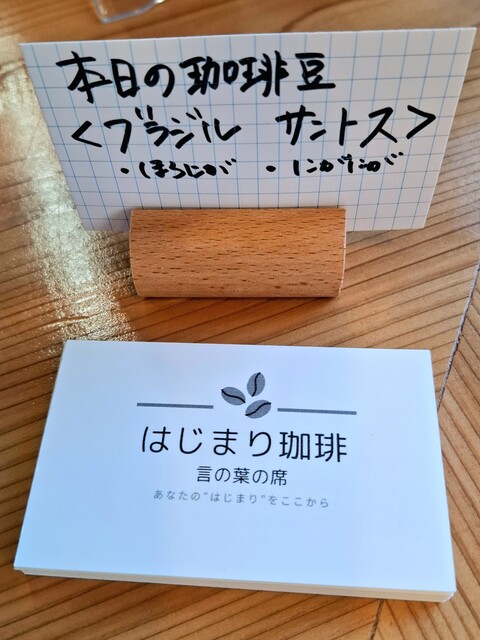 本日の珈琲豆
<ブラジル サントス>
・ほろにが
はじまり珈琲
言の葉の席
あなたの"はじまり"をここから